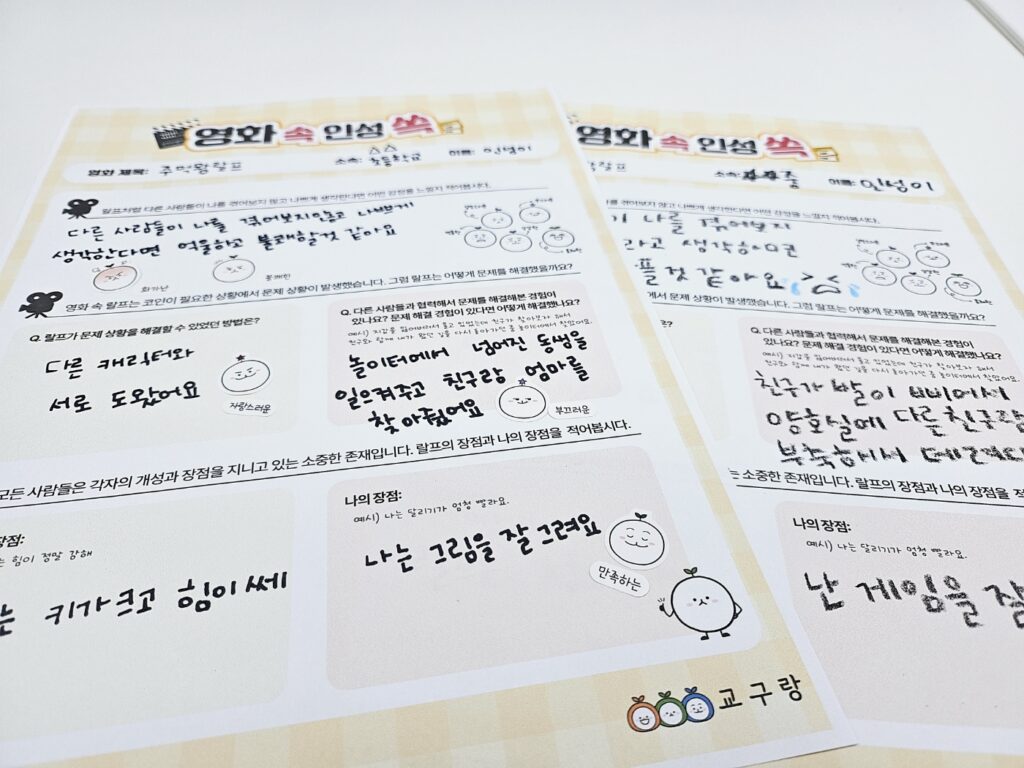 영화 속 인성 쏙
영화 제목: 주먹왕랄프 소속: △△초등학교 이름: 인성이
랄프처럼 다른 사람들이 나를 겪어보지 않고 나쁘게 생각한다면 어떤 감정을 느낄지 적어봅시다.
다른 사람들이 나를 겪어보지않고 나쁘게
생각한다면 억울하고 불쾌할것 같아요
화가난
불쾌한
영화 속 랄프는 코인이 필요한 상황에서 문제 상황이 발생했습니다. 그럼 랄프는 어떻게 문제를 해결했을까요?
Q. 랄프가 문제 상황을 해결할 수 있었던 방법은?
다른 캐릭터와
서로 도왔어요
자랑스러운
Q. 다른 사람들과 협력해서 문제를 해결해본 경험이
있나요? 문제 해결 경험이 있다면 어떻게 해결했나요?
예시) 지갑을 잃어버려서 울고 있었는데 친구가 찾아오자 해서
친구와 함께 내가 왔던 길을 다시 돌아가던 중 놀이터에서 찾았어요.
놀이터에서 넘어진 동생을
일으켜주고 친구랑 엄마를
찾아줬어요
부끄러운
모든 사람들은 각자의 개성과 장점을 지니고 있는 소중한 존재입니다. 랄프의 장점과 나의 장점을 적어봅시다.
장점:
는 힘이 정말 강해
는 키가크고 힘이쎄
나의 장점:
예시) 나는 달리기가 엄청 빨라요.
나는 그림을 잘 그려요
만족하는
교구랑
영화 속 인성 쏙
랄프 소속: 이름: 인성이
를 겪어보지 않고 나쁘게 생각한다면 어떤 감정을 느낄지 적어봅시다.
가 나를 겪어보지
라고 생각하면
플것 같아요
에서 문제 상황이 발생했습니다. 그럼 랄프는 어떻게 문제를 해결했을까요?
은?
Q. 다른 사람들과 협력해서 문제를 해결해본 경험이
있나요? 문제 해결 경험이 있다면 어떻게 해결했나요?
친구가 발이 삐어서
양호실에 다른친구랑
부축해서 데려갔다
는 소중한 존재입니다. 랄프의 장점과 나의 장점을 적
나의 장점:
예시) 나는 달리기가 엄청 빨라요.
난 게임을 잘